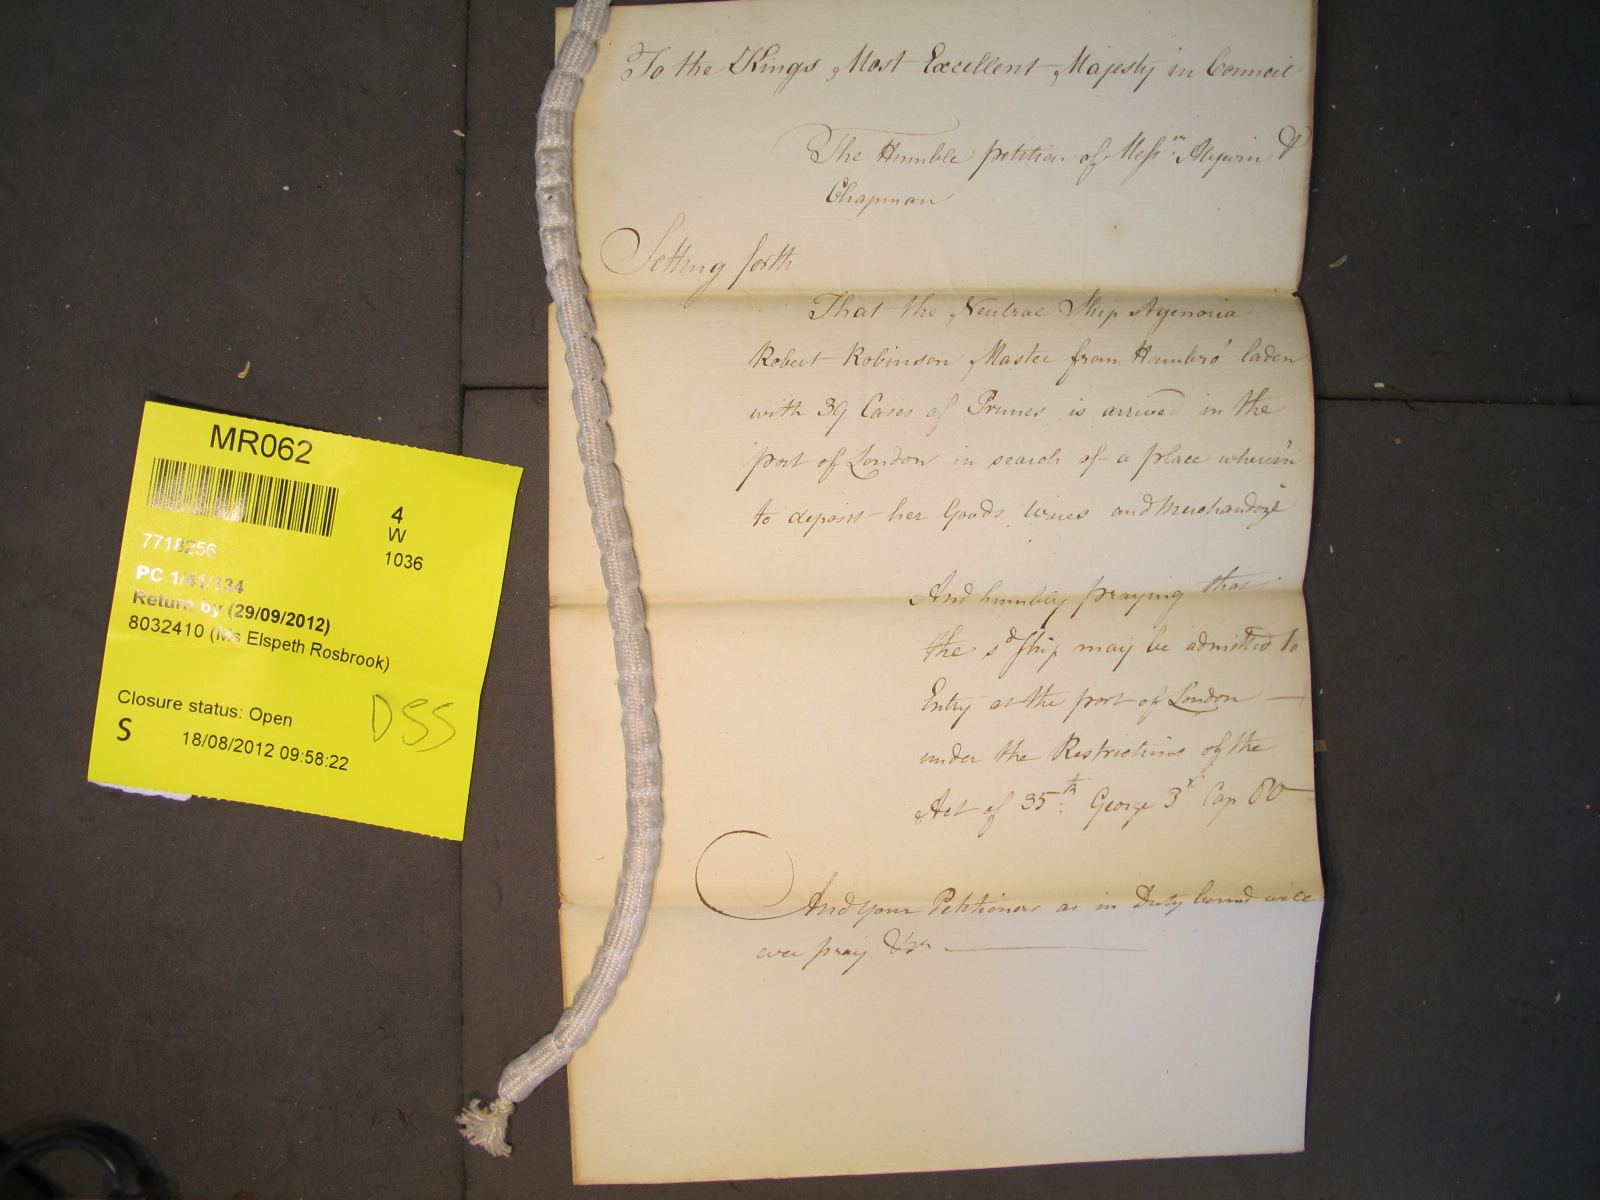 To the Kings Most Excellent Majesty in Council
The Humble petition of Mess.rs Alqwin &
Chapman
Setting forth
That the Neutral Ship Agenoria
Robert Robinson Master from Hambro' laden
with 39 Cases of Prunes is arrived in the
port of London in search of a place wherein
to deposit her Goods wares and Merchandoze
And humbly praying that
the sd Ship may be admitted to
Entry at the port of London —
under the Restrictions of the
Act of 35th: George 3d Cap 80
And your Petitioners as in Duty bound will
ever pray &ca. —
MR062
4
W
1036
7718256
PC 1/41/134
Return by (29/09/2012)
8032410 (Ms Elspeth Rosbrook)
Closure status: Open
DSS
S
18/08/2012 09:58:22